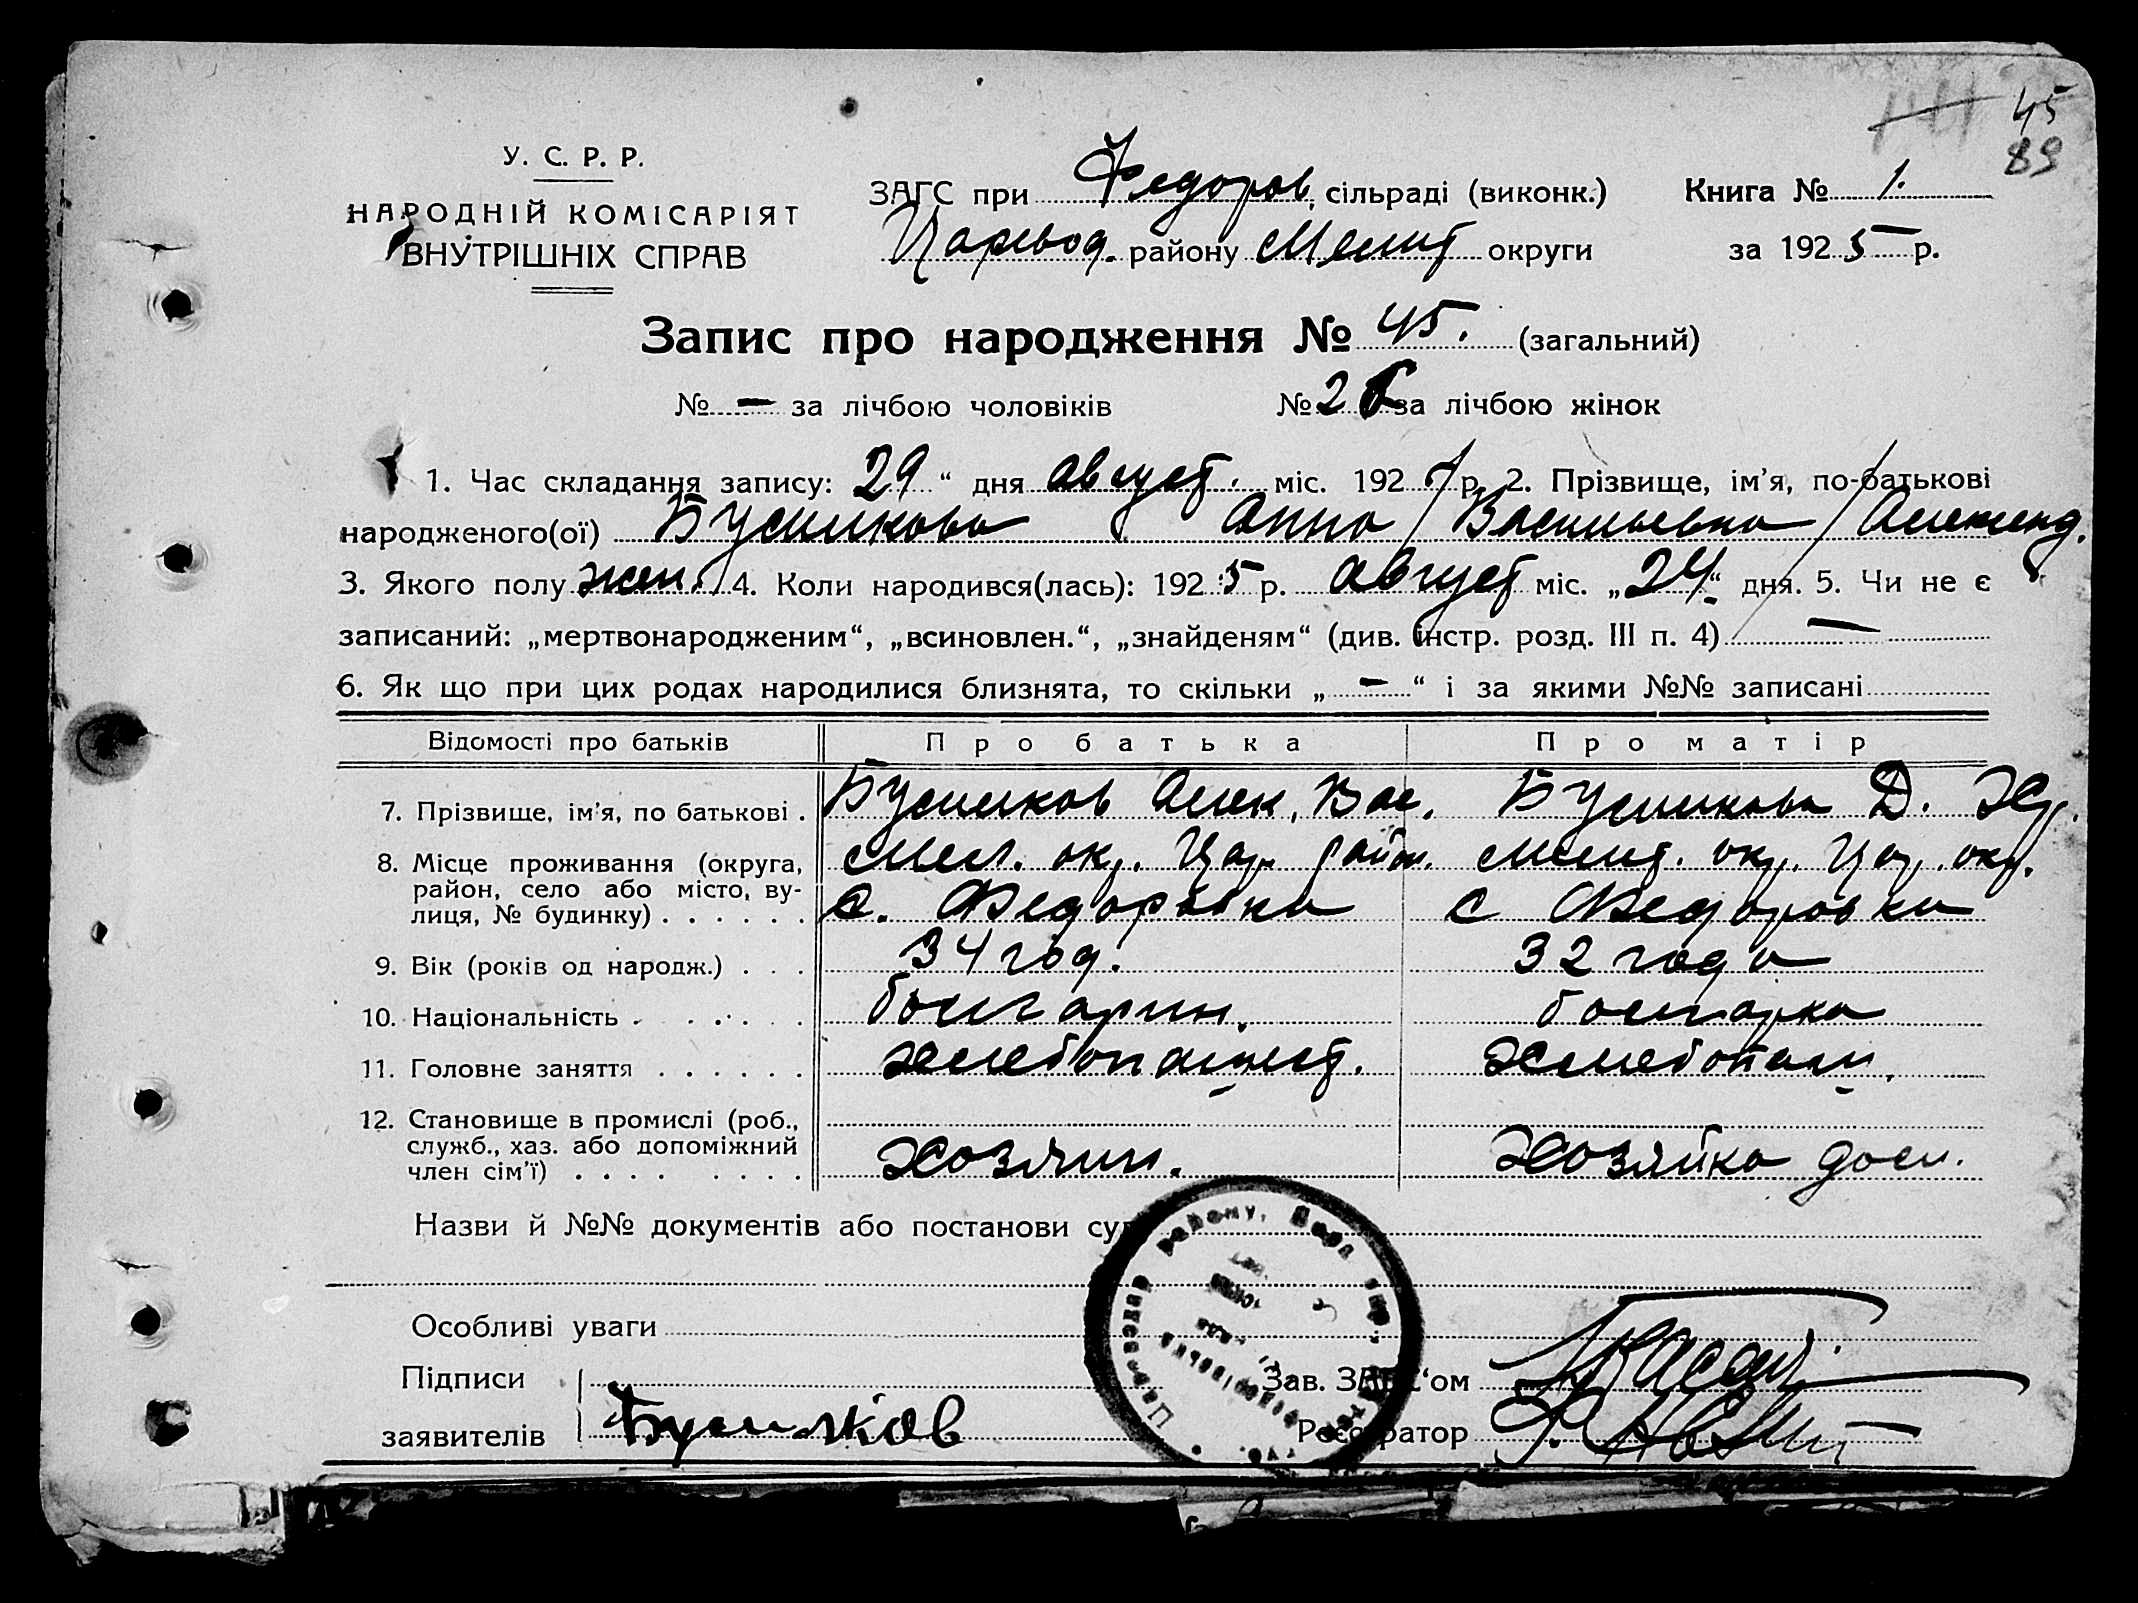 45
89
У. С. Р. Р.
НАРОДНІЙ КОМІСАРІЯТ
ВНУТРІШНІХ СПРАВ
ЗАГС при Федоров. сільраді (виконк.) Книга № 1.
Царевод. району Мелит округи за 1925 р.
Запис про народження № 45. (загальний)
№ — за лічбою чоловіків № 2 за лічбою жінок
1. Час складання запису: 29 “ дня август. міс. 192 р. 2. Прізвище, ім'я, по-батькові
народженого(ої) Анна / Васильевна / Александ.
3. Якого полу жен. 4. Коли народився(лась): 1925 р. август міс. „24“ дня. 5. Чи не є
записаний: „мертвонародженим“, „всиновлен.“, „знайденям“ (див. інстр. розд. III п. 4) —
6. Як що при цих родах народилися близнята, то скільки „ — “ і за якими №№ записані
Відомості про батьків Про батька Про матір
7. Прізвище, ім'я, по батькові . Алек. Вас. Д.
8. Місце проживання (округа, Мел. ок. Цар. район. Мелит. окр. Цар. окр.
район, село або місто, ву-
лиця, № будинку) . . . . . . с. Федоровка с Федоровка
9. Вік (років од народж.) . . . 34 год. 32 года
10. Національність . . . . . . болгарин. болгарка
11. Головне заняття . . . . . . хлебопашест. хлебопаш.
12. Становище в промислі (роб.,
служб., хаз. або допоміжний
член сім'ї) . . . . . . . . хозяин. Хозяйка дом.
Назви й №№ документів або постанови су
Особливі уваги
Підписи Зав. ЗАГС‘ом
заявителів Реєстратор